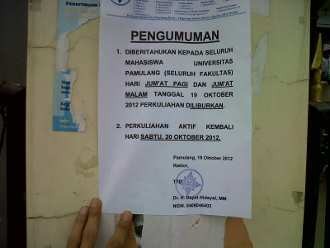 PENGUMUMAN
1. DIBERITAHUKAN KEPADA SELURUH
MAHASISWA UNIVERSITAS
PAMULANG (SELURUH FAKULTAS)
HARI JUM'AT PAGI DAN JUM'AT
MALAM TANGGAL 19 OKTOBER
2012 PERKULIAHAN DILIBURKAN.
2. PERKULIAHAN AKTIF KEMBALI
HARI SABTU, 20 OKTOBER 2012.
Pamulang, 19 Oktober 2012
Rektor,
TTD
Dr. H Dayat Hidayat, MM